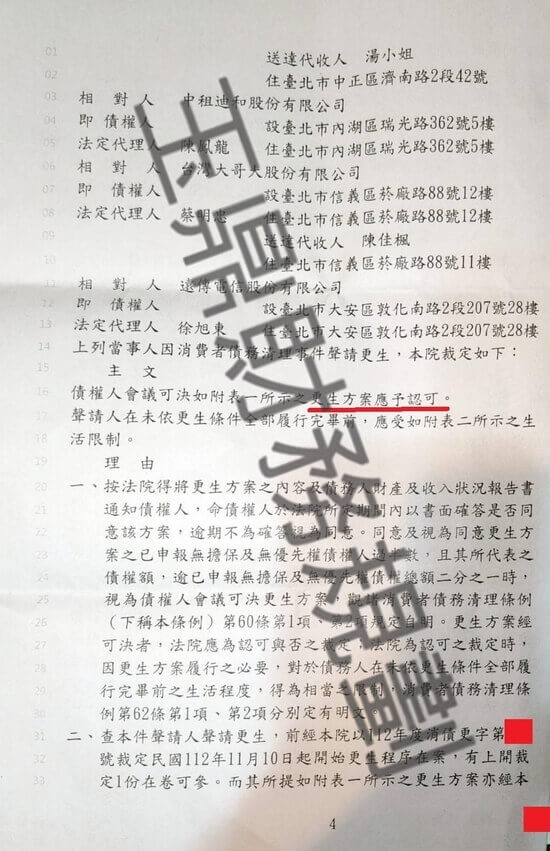 01 送達代收人 湯小姐
02 住臺北市中正區濟南路2段42號
03 相對人 中租迪和股份有限公司
04 即債權人 設臺北市內湖區瑞光路362號5樓
05 法定代理人 陳鳳龍 住臺北市內湖區瑞光路362號5樓
06 相對人 台灣大哥大股份有限公司
07 即債權人 設臺北市信義區菸廠路88號12樓
08 法定代理人 蔡明忠 住臺北市信義區菸廠路88號12樓
09 送達代收人 陳佳楓
10 住臺北市信義區菸廠路88號11樓
11 相對人 遠傳電信股份有限公司
12 即債權人 設臺北市大安區敦化南路2段207號28樓
13 法定代理人 徐旭東 住臺北市大安區敦化南路2段207號28樓
14 上列當事人因消費者債務清理事件聲請更生,本院裁定如下:
15 主文
16 債權人會議可決如附表一所示之更生方案應予認可。
17 聲請人在未依更生條件全部履行完畢前,應受如附表二所示之生
18 活限制。
19 理由
20 一、按法院得將更生方案之內容及債務人財產及收入狀況報告書
21 通知債權人,命債權人於法院所定期間內以書面確答是否同
22 意該方案,逾期不為確答視為同意。同意及視為同意更生方
23 案之已申報無擔保及無優先權債權人過半數,且其所代表之
24 債權額,逾已申報無擔保及無優先權債權總額二分之一時,
25 視為債權人會議可決更生方案,觀諸消費者債務清理條例
26 (下稱本條例)第60條第1項、第2項規定自明。更生方案經
27 可決者,法院應為認可與否之裁定;法院為認可之裁定時,
28 因更生方案履行之必要,對於債務人在未依更生條件全部履
29 行完畢前之生活程度,得為相當之限制,消費者債務清理條
30 例第62條第1項、第2項分別定有明文。
31 二、查本件聲請人聲請更生,前經本院以112年度消債更字第
32 號裁定民國112年11月10日起開始更生程序在案,有上開裁
33 定1份在卷可參。而其所提如附表一所示之更生方案亦經本
4
玉鼎財務規劃